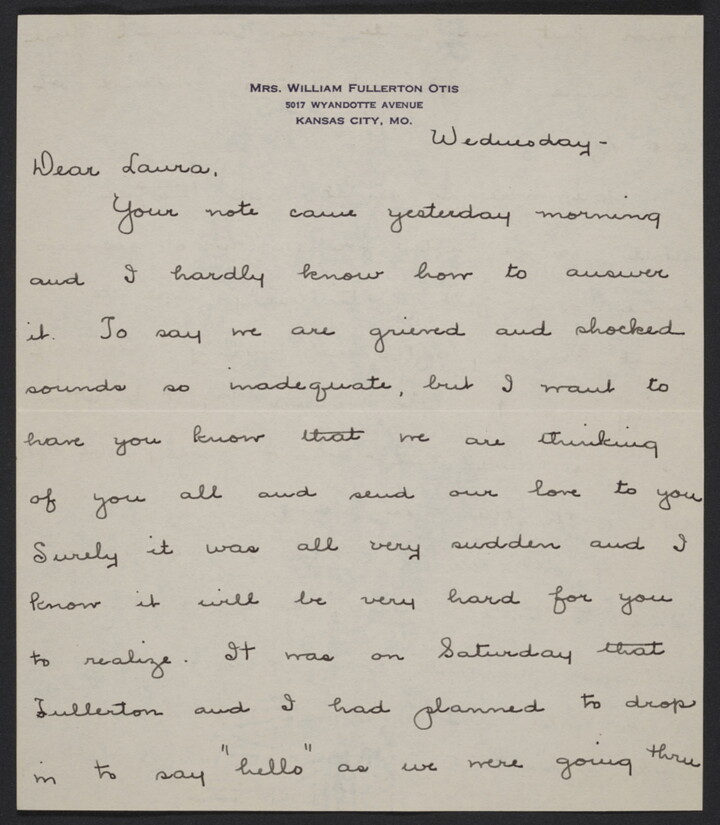 MRS. WILLIAM FULLERTON OTIS
5017 WYANDOTTE AVENUE
KANSAS CITY, MO.
Wednesday-
Dear Laura,
Your note came yesterday morning
and I hardly know how to answer
it. To say we are grieved and shocked
sounds so inadequate, but I want to
have you know that we are thinking
of you all and send our love to you
Surely it was all very sudden and I
know it will be very hard for you
to realize. It was on Saturday that
Fullerton and I had planned to drop
in to say "hello" as we were going thru